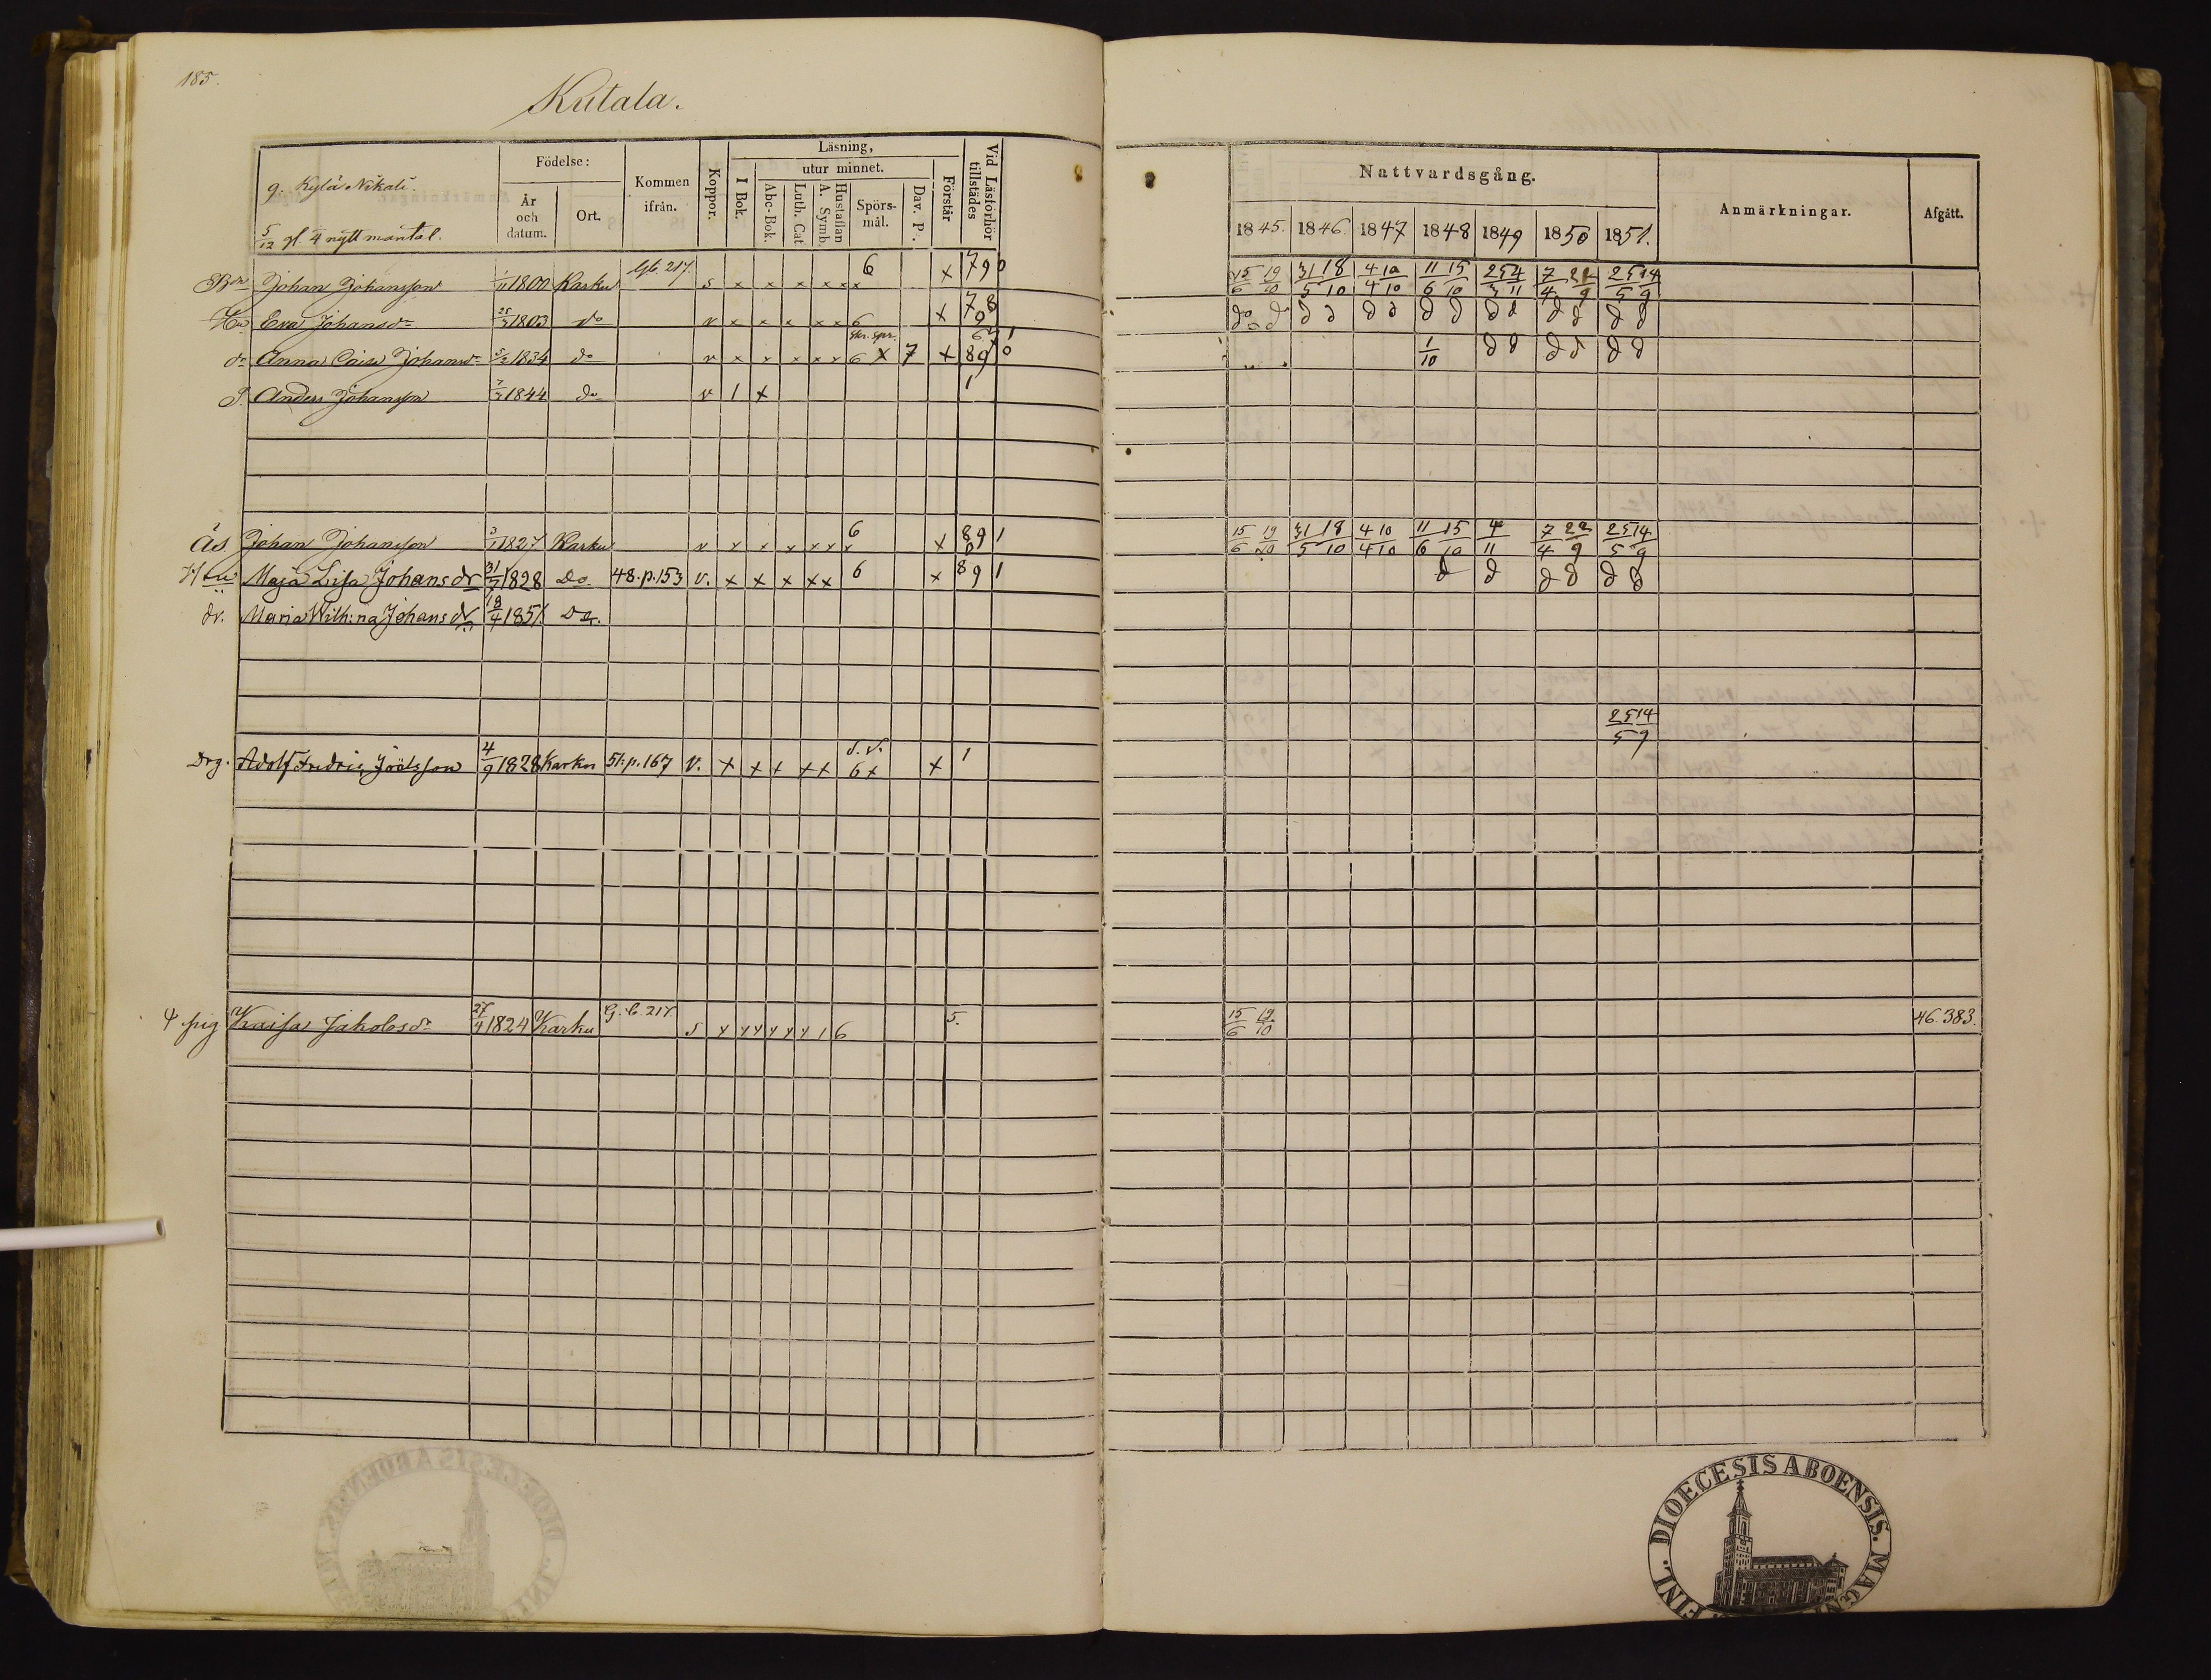 185.
Kutala.
g. Kylä Nikali.
5/12 gl. 4 nytt mantal.
Födelse:
År och datum.
Ort.
Kommen ifrån.
Koppor.
Läsning,
I Bok.
utur minnet.
Abc-Bok.
Luth. Cat.
Hustaflan A. Symb.
Spörs-mål.
Dav. P.
Förstår
Vid Läsförhör tillstädes
Nattvardsgång.
1845. 1846. 1847 1848 1849 1850 1851.
Anmärkningar.
Afgått.
Johan Johansson 1800 Karku 217. s x x x x x x 6 x 79 0 15/6 19/10 31/5 18/10 4/4 10/10 11/6 15/10 7/4 25/5 14/9
Hu Eva Johansdr 25/3 1803 do v x x x x x 6 x 78 9
dr Anna Caisa Johansdr 1834 do v x x x x x 6 x 7 x 89 0 1/10 d d d d d d
P. Anders Johansson 1844 do v 1 x 1
Ås Johan Johansson 1827 Karku v x x x x x x 6 x 89 1 15/6 19/10 31/5 18/10 4/4 10/10 11/6 15/10 4/11 7/4 25/5 14/9
Hu Maja Lisa Johansdr 31/7 1828 Do 48.p.153 v. x x x x x 6 x 89 1 d d d d d d
dr. Maria Wilh:na Johansdr 18/4 1851. Do.
25/5 14/9
Drg. Adolf Fredric Joelsson 4/9 1828 Karku 51.p.167 v. x x x x x 6 x x 1
pig Kaisa Jakobsdr 27/4 1824 Karku 217 s x x x x x x 1 6 5. 15/6 19/10 46.383.
DIOECESIS ABOENSIS. MAGNI FINL.